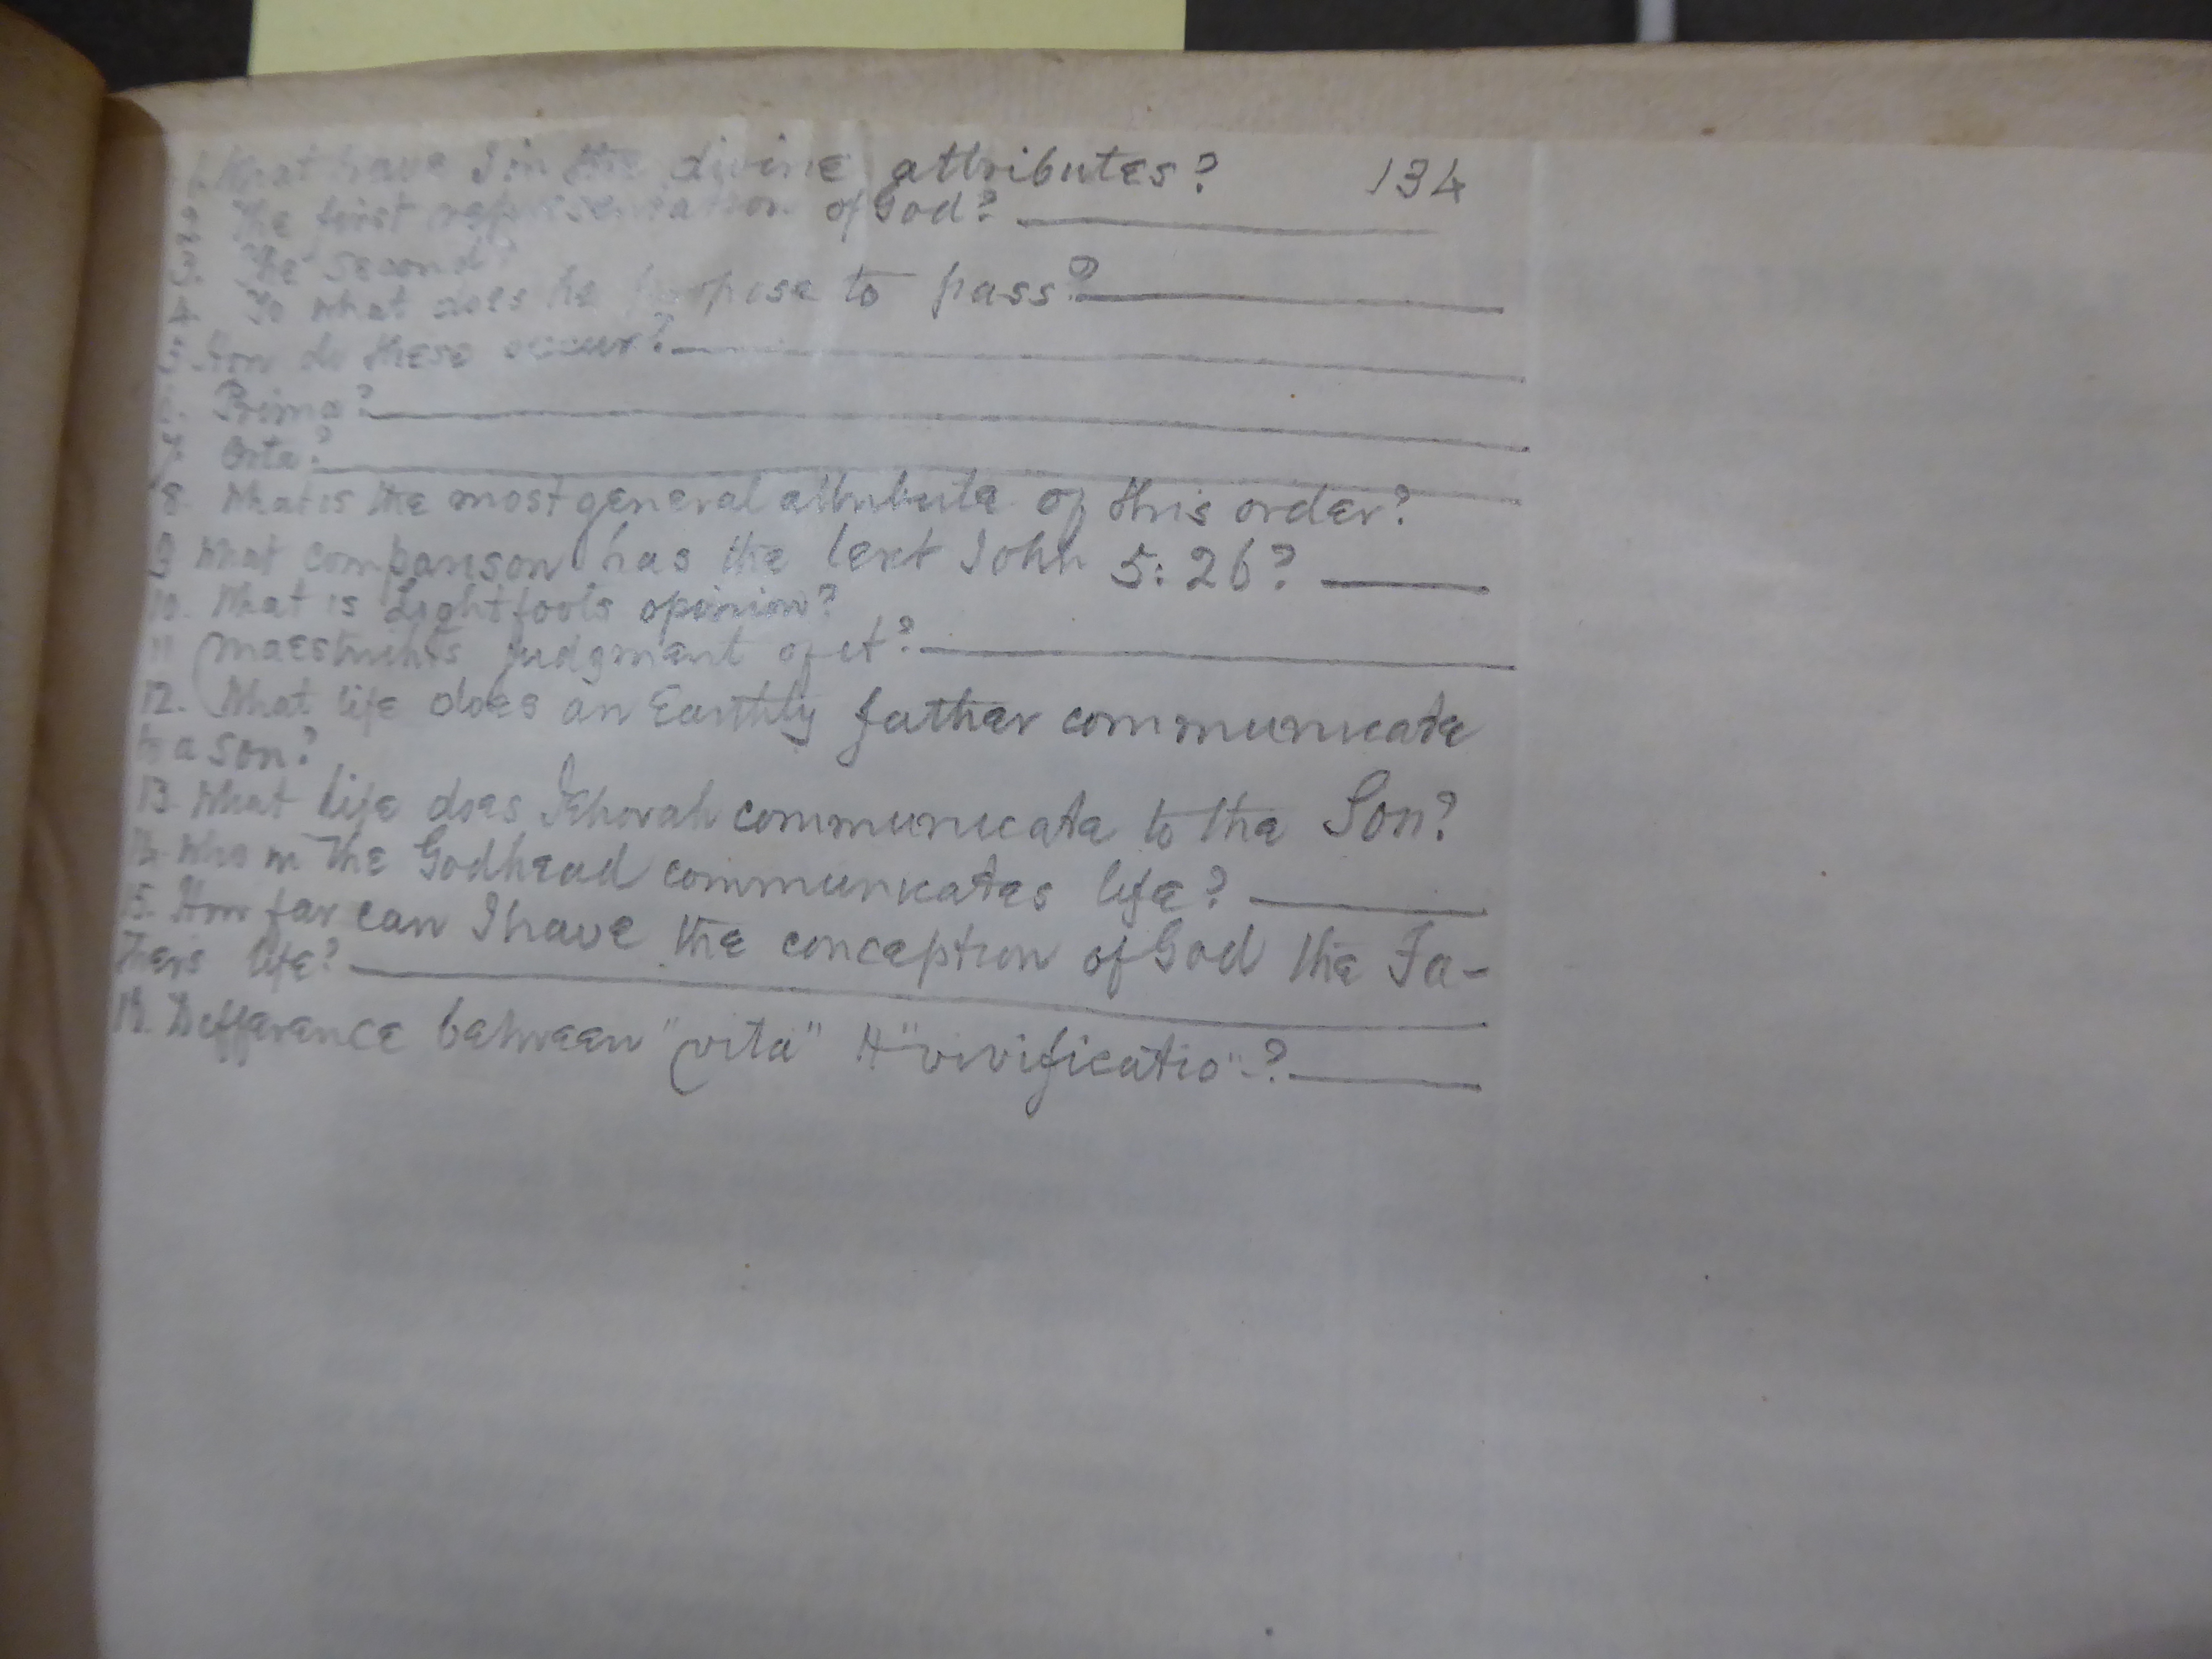 1. What have I in the divine attributes? 134
2. The first representation of God?
3. The second?
4. To what does he propose to pass?
5 How do these occur?
6. Prima?
7. Orta?
8. What is the most general attribute of this order?
9 What comparison has the text John 5:26?
10. What is Lightfoot's opinion?
11 Maestricht's judgment of it?
12. What life does an Earthly father communicate
to a son?
13. What life does Jehovah communicate to the Son?
14. Who in the Godhead communicates life?
15. How far can I have the conception of God the Fa-
ther's life?
16. Difference between "vita" & "vivificatio"?